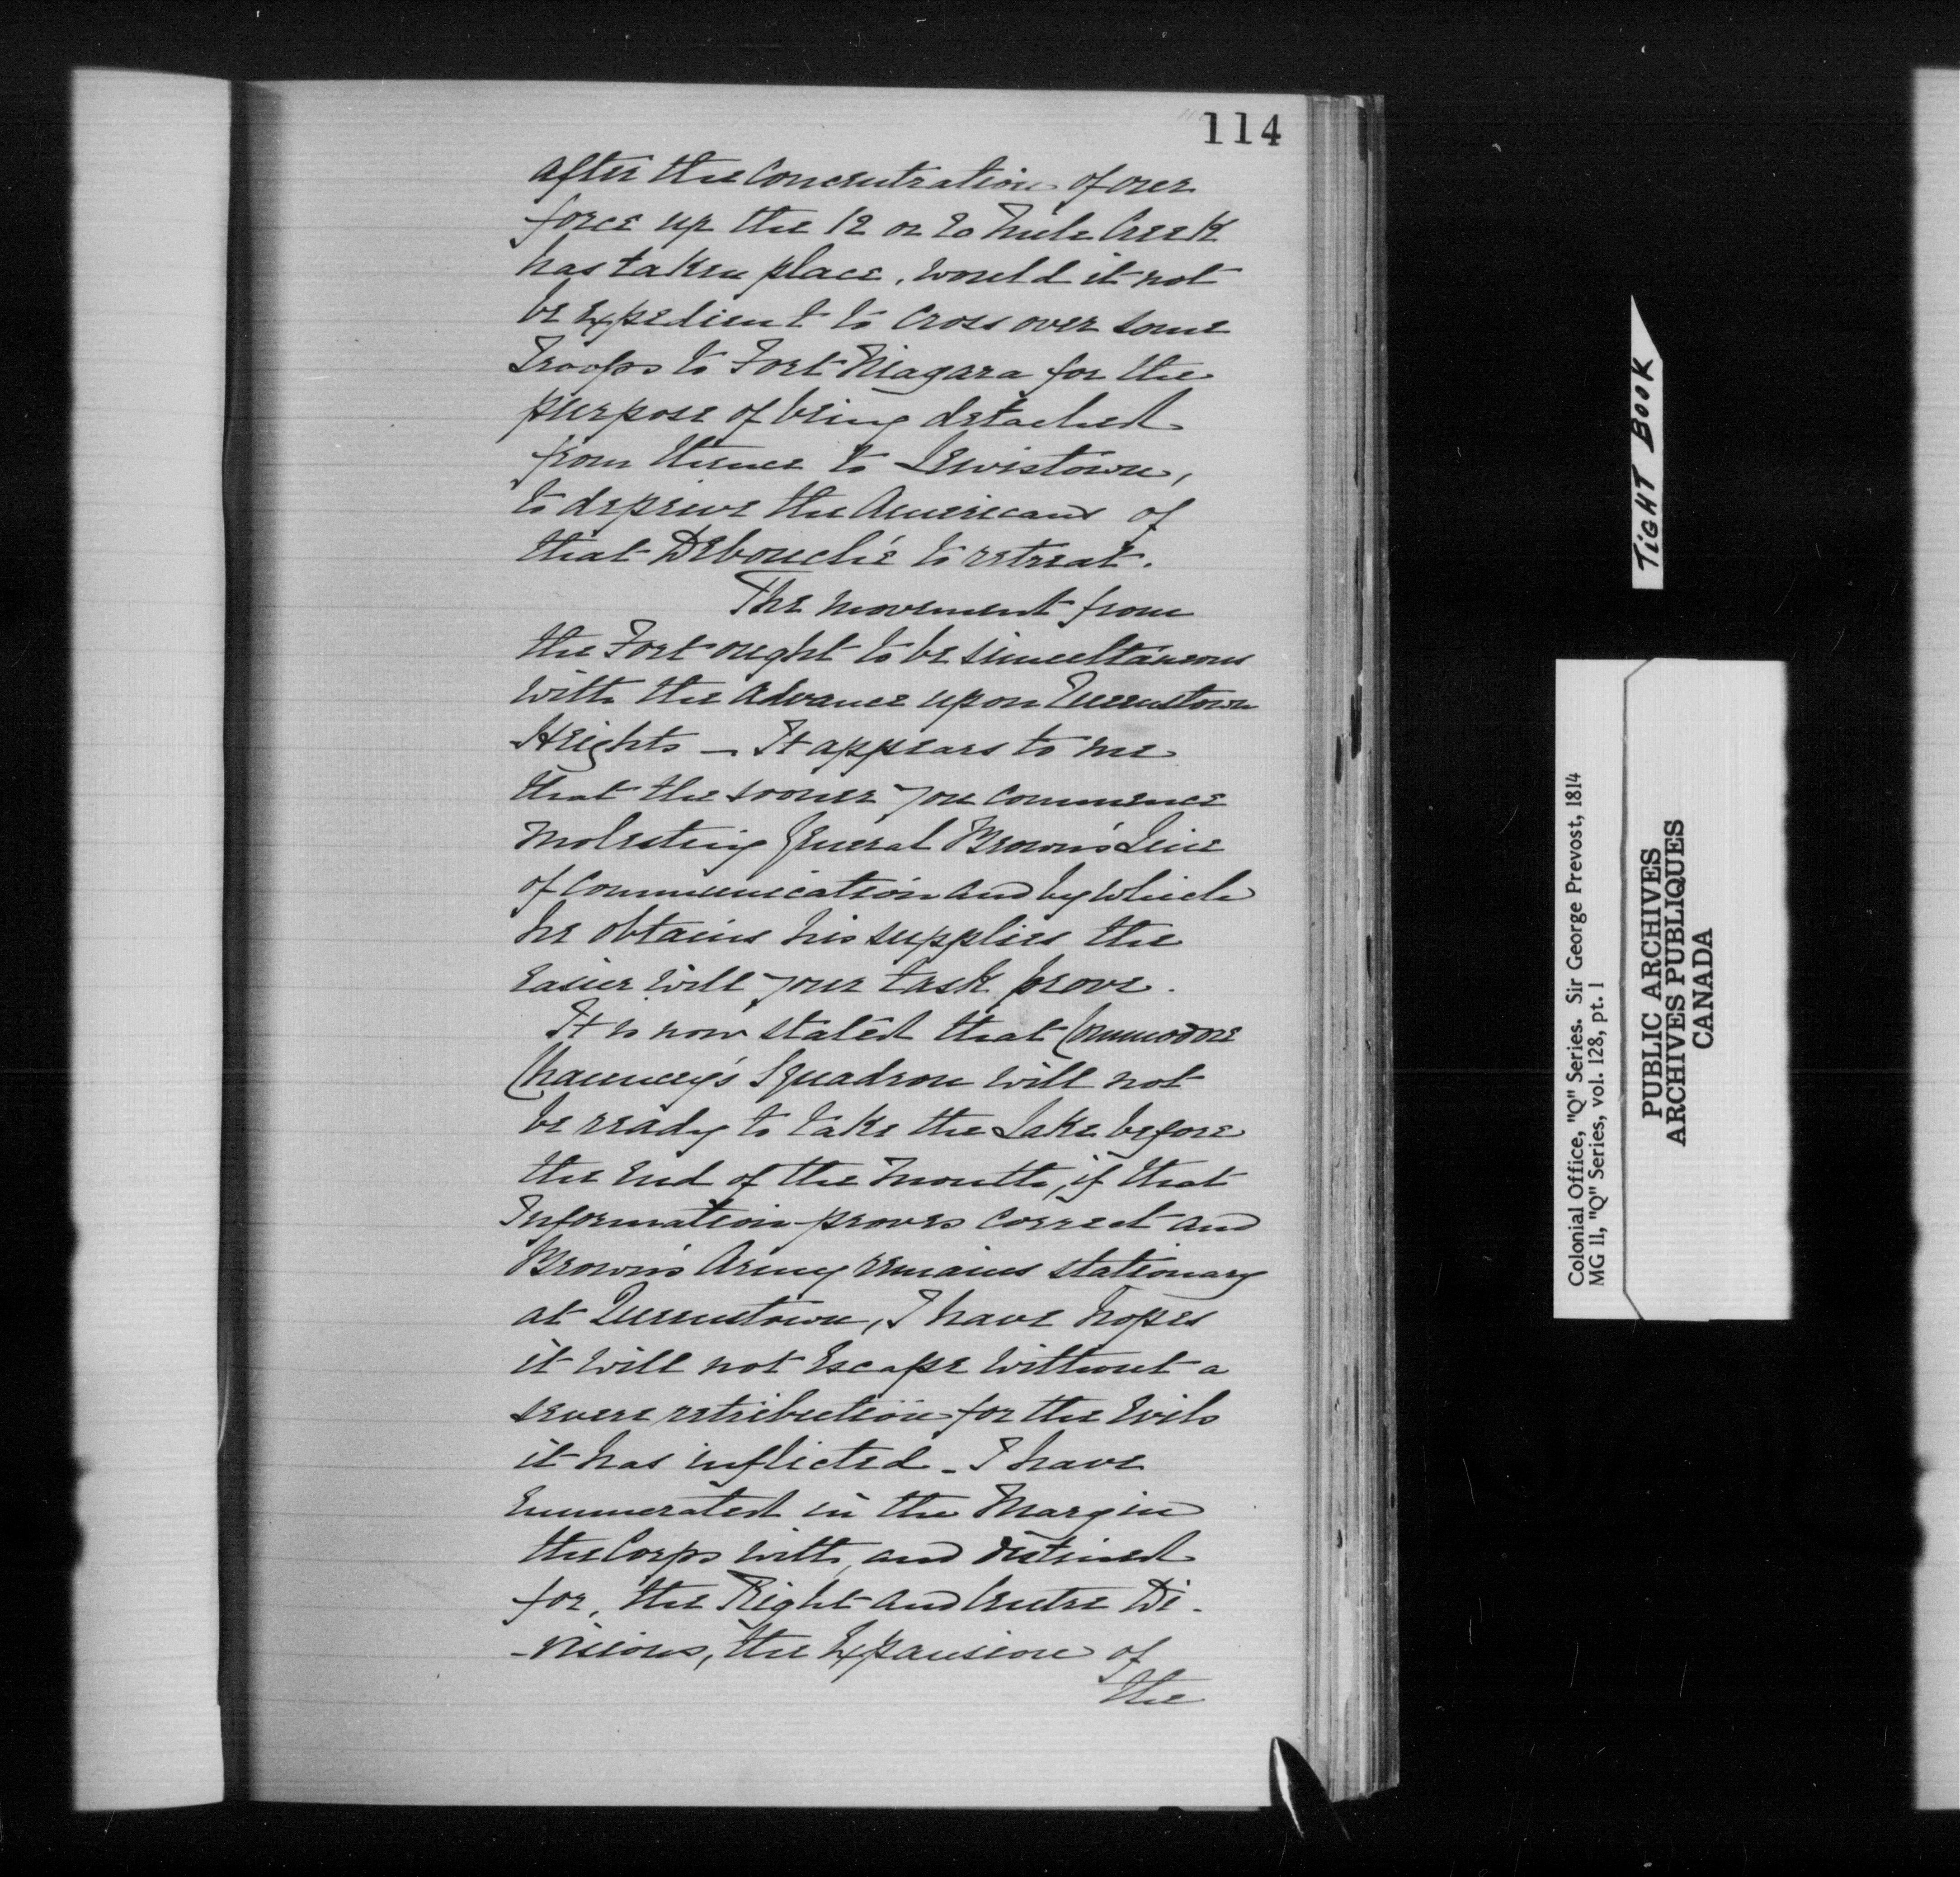 114
after the Concentration of our
force up the 12 or 20 Mile Creek
has taken place, would it not
be Expedient to Cross over some
Troops to Fort Niagara for the
purpose of being detached
from thence to Lewistown,
to deprive the Americans of
that Debouché to retreat.
The movement from
the Fort ought to be simultaneous
with the Advance upon Queenstown
Heights – It appears to me
that the sooner you Commence
Molesting General Brown's Line
of Communication and by which
he obtains his supplies the
Easier will your task prove.
It is now stated that Commodore
Chauncey's Squadron will not
be ready to take the Lake before
the End of the Month, if that
Information proves Correct and
Brown's Army remains stationary
at Queenstown, I have hopes
it will not Escape without a
severe retribution for the Evils
it has inflicted – I have
Enumerated in the Margin
the Corps with, and destined
for, the Right and Centre Di-
-visions, the Expansion of
the
TIGHT BOOK
Colonial Office, "Q" Series. Sir George Prevost, 1814
MG 11, "Q" Series, vol. 128, pt. 1
PUBLIC ARCHIVES
ARCHIVES PUBLIQUES
CANADA